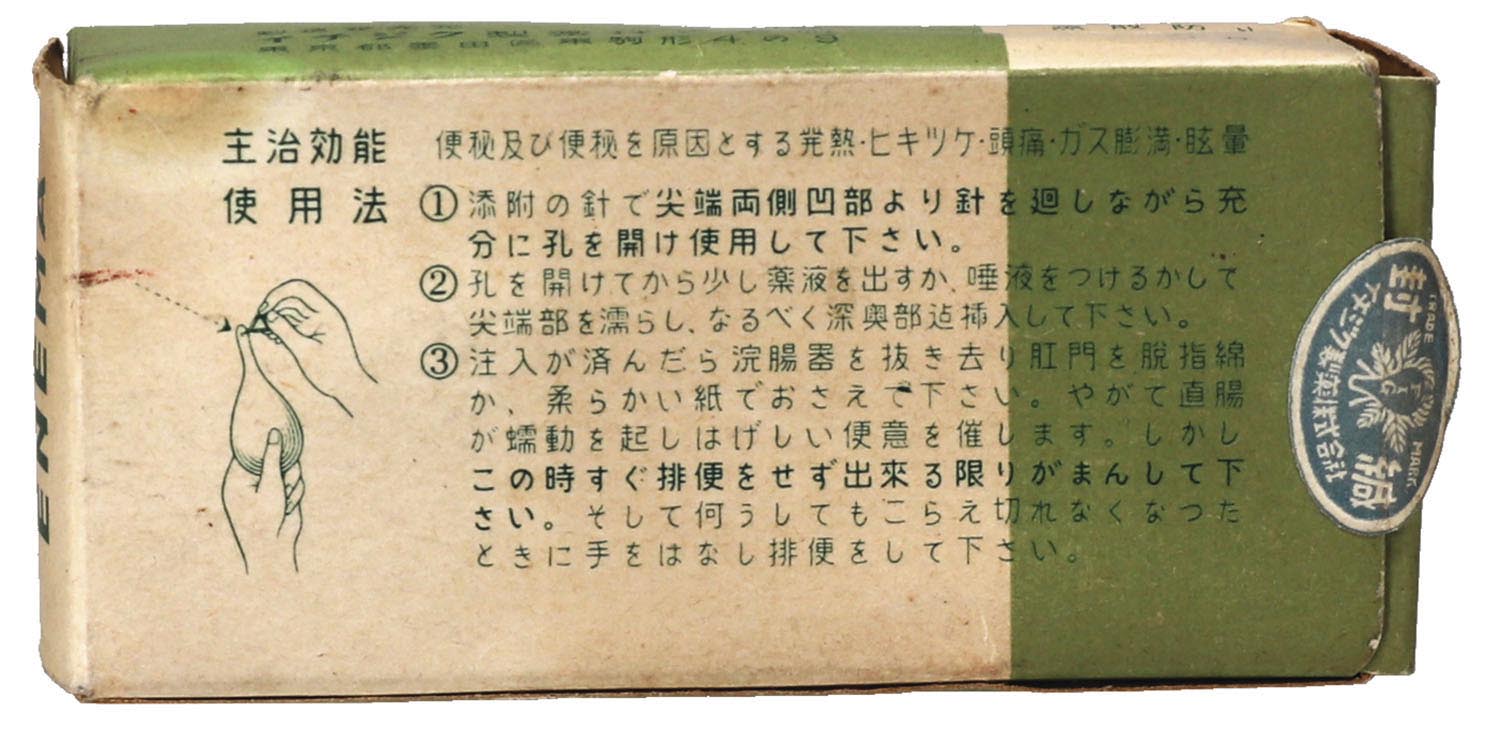 東京都墨田區東駒形4の9
主治効能 便秘及び便秘を原因とする発熱・ヒキツケ・頭痛・ガス膨満・眩暈
使用法 ①添附の針で尖端両側凹部より針を廻しながら充
分に孔を開け使用して下さい。
②孔を開けてから少し薬液を出すか、唾液をつけるかして
尖端部を濡らし、なるべく深奥部迠挿入して下さい。
③注入が済んだら浣腸器を抜き去り肛門を脱指綿
か、柔らかい紙でおさえて下さい。やがて直腸
が蠕動を起しはげしい便意を催します。しかし
この時すぐ排便をせず出來る限りがまんして下
さい。そして何うしてもこらえ切れなくなつた
ときに手をはなし排便をして下さい。
ENEMA
封緘
TRADE MARK
イチジク製薬株式会社